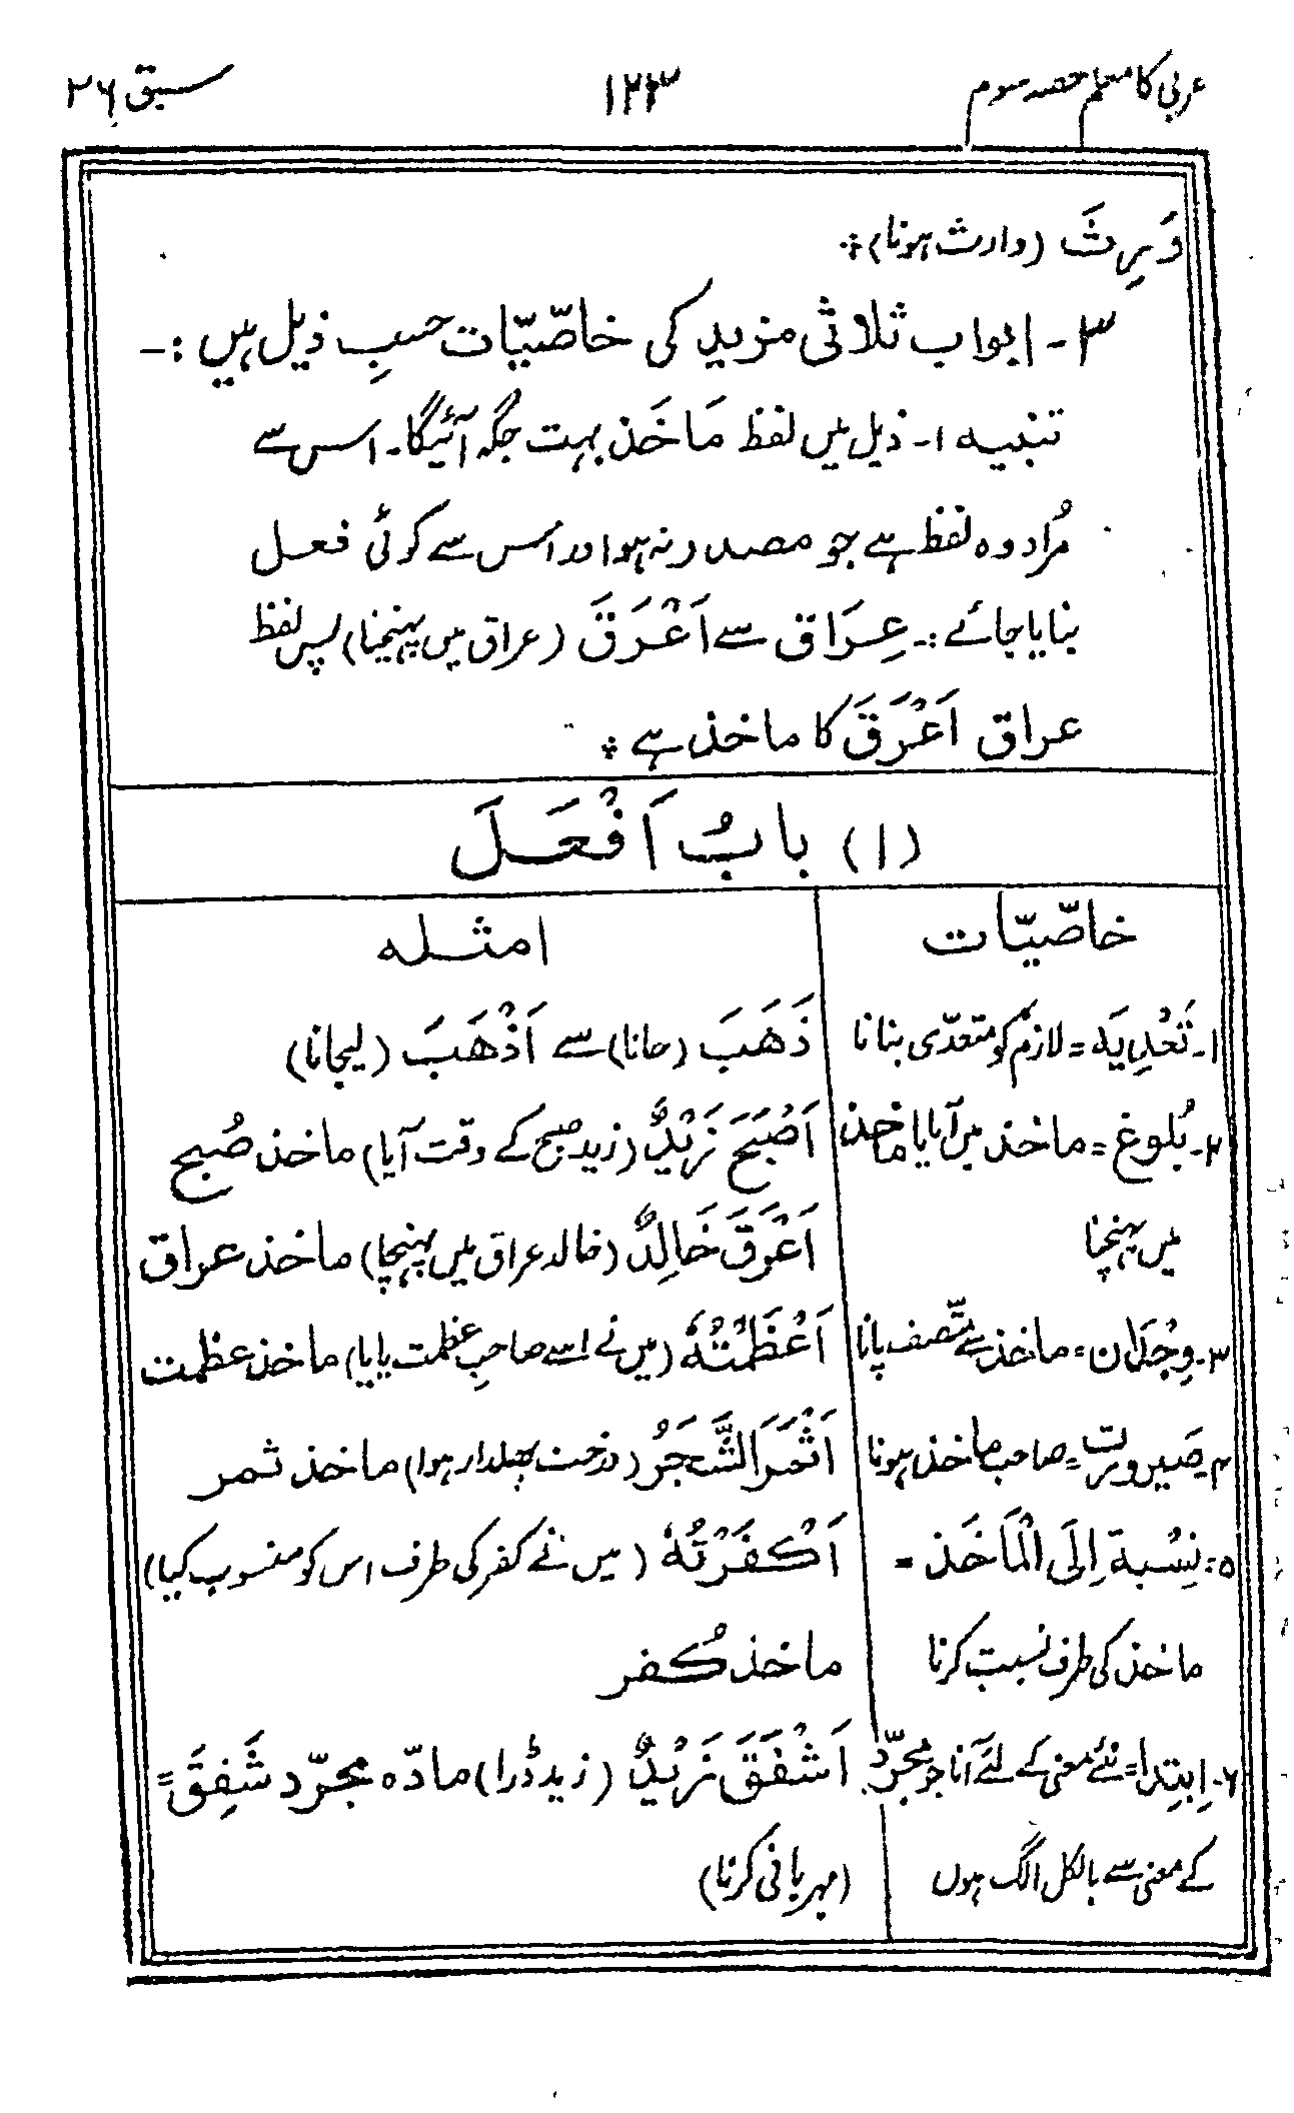 عربی کا معلم حصہ سوم ۱۲۳ سبق ۲۶
وَرِثَ (وارث ہونا)÷
۳ - ابواب ثلاثی مزید کی خاصّیّات حسبِ ذیل ہیں :-
تنبیہ ۱- ذیل میں لفظ مَاخَذ بہت جگہ آئیگا۔ اس سے
مُراد وہ لفظ ہے جو مصدر نہ ہو اور اُس سے کوئی فعل
بنایا جائے :- عِرَاق سے اَعْرَقَ (عراق میں پہنچنا) پس لفظ
عراق اَعْرَقَ کا ماخذ ہے ÷
(۱) بابُ اَفْعَلَ
خاصّیّات امثلہ
۱- تَعْدِیَہ = لازم کو متعدّی بنانا ذَهَبَ (جانا) سے اَذْهَبَ (لیجانا)
۲- بُلوغ = ماخذ میں آنا یا ماخذ اَصْبَحَ زَيْدٌ (زید صبح کے وقت آیا) ماخذ صُبح
میں پہنچنا اَعْرَقَ خَالِدٌ (خالد عراق میں پہنچا) ماخذ عراق
۳- وِجْدَان = ماخذ سے متّصف پانا اَعْظَمْتُهٗ (میں نے اسے صاحبِ عظمت پایا) ماخذ عظمت
۴- صَیرورت = صاحب ماخذ ہونا اَثْمَرَ الشَّجَرُ (درخت پھلدار ہوا) ماخذ ثمر
۵: نِسْبة اِلَی الْمَاخَذ = اَكْفَرْتُهٗ (میں نے کفر کی طرف اس کو منسوب کیا)
ماخذ کی طرف نسبت کرنا ماخذ کُفر
۶- اِبتِدا = نئے معنی کے لئے آنا جو مجرّد اَشْفَقَ زَيْدٌ (زید ڈرا) مادّہ مجرّد شَفِقَ =
کے معنی سے بالکل الگ ہوں (مہربانی کرنا)